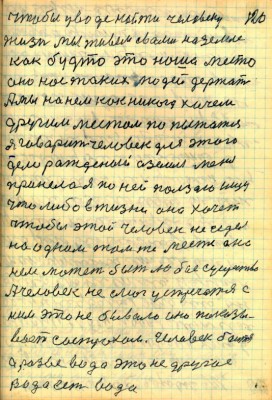 чтобы у воде найти человеку
жизь мы живем свами на земле
как будто это наша место
оно нас таких людей держат
Амы на нем как никого хочем
другим местом по пытатся
я говорит человек для этого
дело рожденый а земля меня
принела я по ней ползаю ищу
что либо в жизни оно хочет
чтобы этой человек не седел
на одном том же месте а на
нем может быт любое существо
Ачеловек не смог устречатся с
ним это не бывало оно показы-
вает састрохом. Человек боится
а разве вода это не другое
вода ест вода